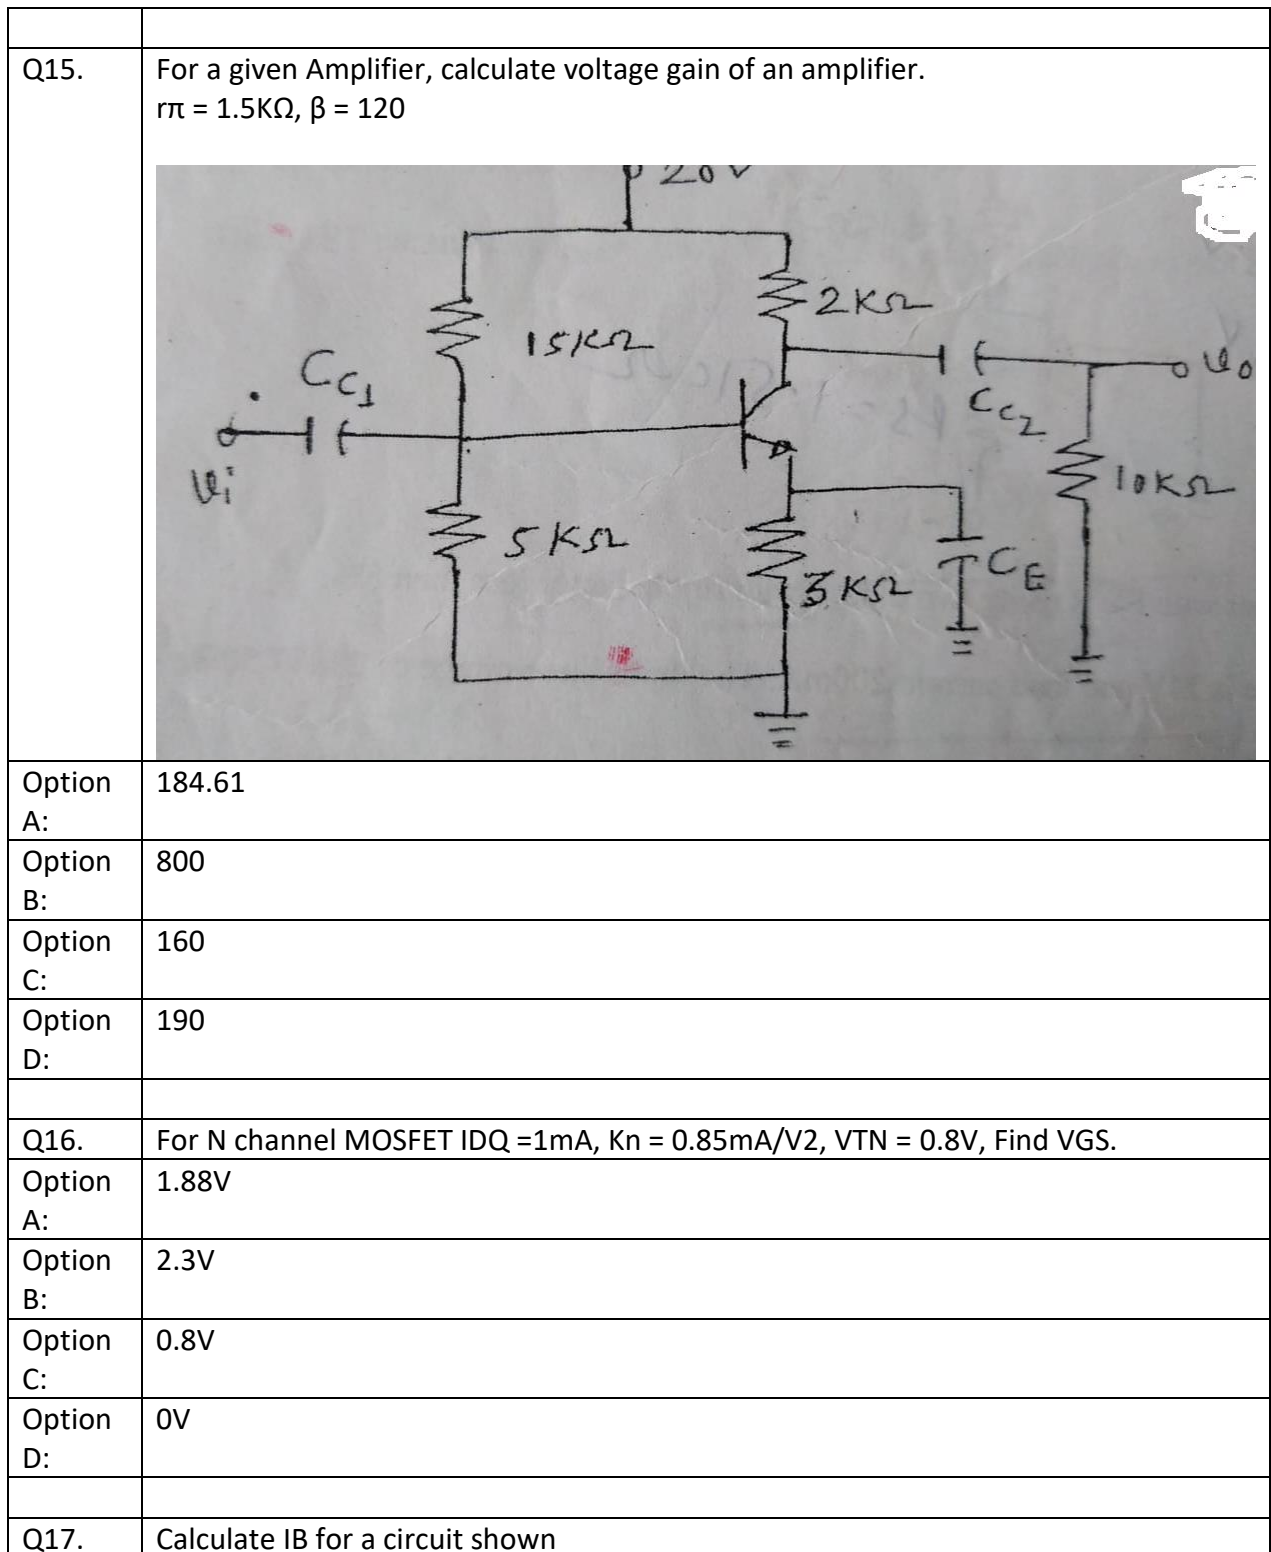 Q15.
For a given Amplifier, calculate voltage gain of an amplifier.
rπ = 1.5KΩ, β = 120
20V
2KΩ
15KΩ
CC1
vo
CC2
vi
10KΩ
5KΩ
CE
3KΩ
Option A:
184.61
Option B:
800
Option C:
160
Option D:
190
Q16.
For N channel MOSFET IDQ =1mA, Kn = 0.85mA/V2, VTN = 0.8V, Find VGS.
Option A:
1.88V
Option B:
2.3V
Option C:
0.8V
Option D:
0V
Q17.
Calculate IB for a circuit shown